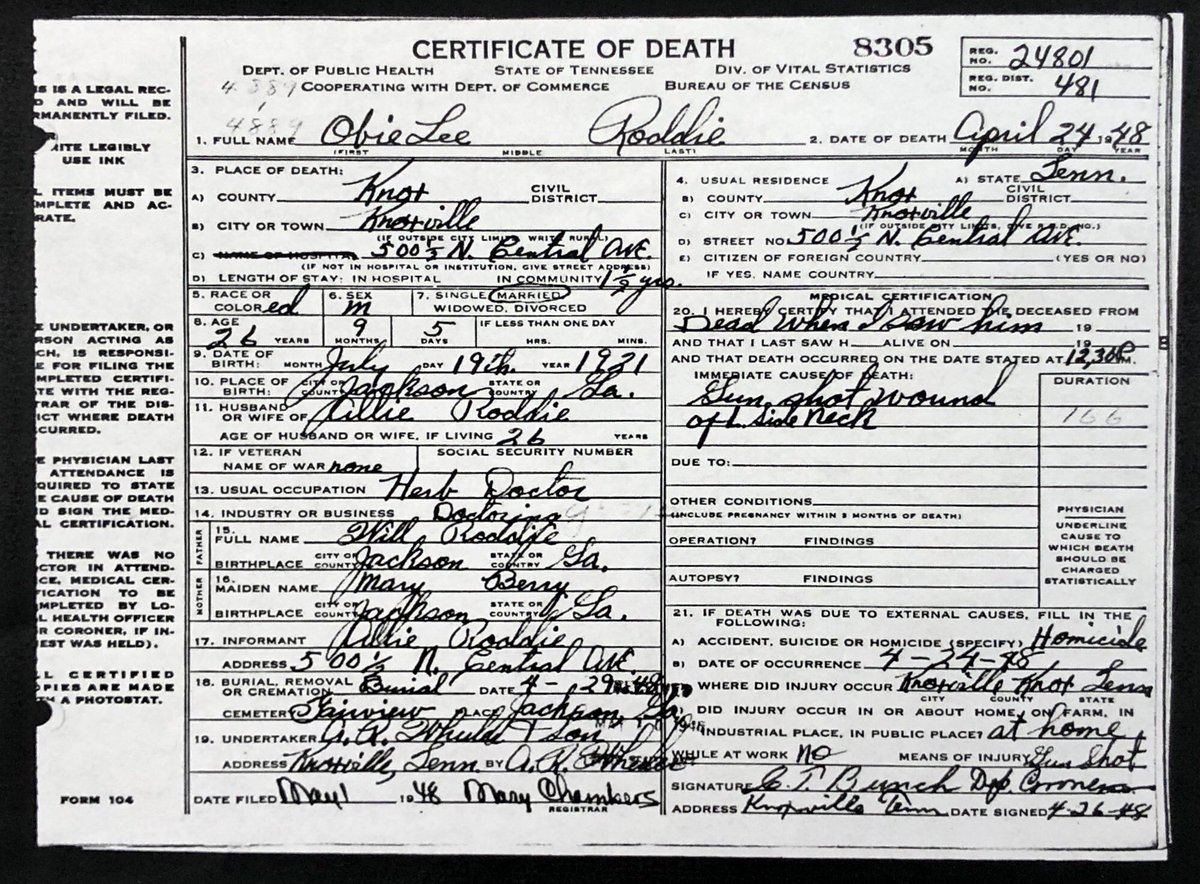 CERTIFICATE OF DEATH 8305
REG. NO. 24801
DEPT. OF PUBLIC HEALTH STATE OF TENNESSEE DIV. OF VITAL STATISTICS
REG. DIST. NO. 481
COOPERATING WITH DEPT. OF COMMERCE BUREAU OF THE CENSUS
4389
4889
1. FULL NAME Obie Lee Roddie 2. DATE OF DEATH April 24 1948
(FIRST) MIDDLE LAST) MONTH DAY YEAR
3. PLACE OF DEATH:
A) COUNTY Knox CIVIL DISTRICT
B) CITY OR TOWN Knoxville
(IF OUTSIDE CITY LIMITS, WRITE RURAL)
C) NAME OF HOSPITAL 500 1/2 N. Central Ave.
(IF NOT IN HOSPITAL OR INSTITUTION, GIVE STREET ADDRESS)
D) LENGTH OF STAY: IN HOSPITAL IN COMMUNITY 1 1/2 yrs.
4. USUAL RESIDENCE A) STATE Tenn.
B) COUNTY Knox CIVIL DISTRICT
C) CITY OR TOWN Knoxville
D) STREET NO. 500 1/2 N. Central Ave.
E) CITIZEN OF FOREIGN COUNTRY (YES OR NO)
IF YES, NAME COUNTRY
5. RACE OR COLOR ed 6. SEX m 7. SINGLE, MARRIED, WIDOWED, DIVORCED
8. AGE 26 YEARS 9 MONTHS 5 DAYS IF LESS THAN ONE DAY HRS. MINS.
9. DATE OF BIRTH: MONTH July DAY 19th. YEAR 1921
10. PLACE OF BIRTH: CITY OR COUNTY Jackson STATE OR COUNTRY Ga.
11. HUSBAND OR WIFE OF Lillie Roddie
AGE OF HUSBAND OR WIFE, IF LIVING 26 YEARS
12. IF VETERAN NAME OF WAR none SOCIAL SECURITY NUMBER
13. USUAL OCCUPATION Herb Doctor
14. INDUSTRY OR BUSINESS Doctoring
FATHER
15. FULL NAME Will Roddie
BIRTHPLACE CITY OR COUNTY Jackson STATE OR COUNTRY Ga.
MOTHER
16. MAIDEN NAME Mary Berry
BIRTHPLACE CITY OR COUNTY Jackson STATE OR COUNTRY Ga.
17. INFORMANT Lillie Roddie
ADDRESS 500 1/2 N. Central Ave.
18. BURIAL, REMOVAL OR CREMATION Burial DATE 4-29-48
CEMETERY Fairview PLACE Jackson Ga.
19. UNDERTAKER & Son
ADDRESS Knoxville, Tenn. BY
DATE FILED May 1 1948 Mary Chambers
REGISTRAR
MEDICAL CERTIFICATION
20. I HEREBY CERTIFY THAT I ATTENDED THE DECEASED FROM
Dead When I saw him 19
AND THAT I LAST SAW H ALIVE ON 19
AND THAT DEATH OCCURRED ON THE DATE STATED AT 12,30 P M.
IMMEDIATE CAUSE OF DEATH: DURATION
Gun shot wound 166
of L. side neck
DUE TO:
OTHER CONDITIONS
(INCLUDE PREGNANCY WITHIN 3 MONTHS OF DEATH)
OPERATION? FINDINGS
AUTOPSY? FINDINGS
PHYSICIAN UNDERLINE CAUSE TO WHICH DEATH SHOULD BE CHARGED STATISTICALLY
21. IF DEATH WAS DUE TO EXTERNAL CAUSES, FILL IN THE FOLLOWING:
A) ACCIDENT, SUICIDE OR HOMICIDE (SPECIFY) Homicide
B) DATE OF OCCURRENCE 4-24-48
WHERE DID INJURY OCCUR Knoxville Knox Tenn
CITY COUNTY STATE
DID INJURY OCCUR IN OR ABOUT HOME, ON FARM, IN
INDUSTRIAL PLACE, IN PUBLIC PLACE? at home
WHILE AT WORK NO MEANS OF INJURY Gun Shot
SIGNATURE C. T. Bunch Dep. Coroner
ADDRESS Knoxville Tenn DATE SIGNED 4-26-48
IS IS A LEGAL REC-
D AND WILL BE
RMANENTLY FILED.
RITE LEGIBLY
USE INK
L ITEMS MUST BE
MPLETE AND AC-
RATE.
E UNDERTAKER, OR
RSON ACTING AS
CH, IS RESPONSI-
E FOR FILING THE
MPLETED CERTIFI-
TE WITH THE REG-
TRAR OF THE DIS-
ICT WHERE DEATH
CURRED.
E PHYSICIAN LAST
ATTENDANCE IS
QUIRED TO STATE
E CAUSE OF DEATH
D SIGN THE MED-
AL CERTIFICATION.
THERE WAS NO
CTOR IN ATTEND-
CE, MEDICAL CER-
FICATION TO BE
MPLETED BY LO-
L HEALTH OFFICER
R CORONER, IF IN-
EST WAS HELD).
LL CERTIFIED
OPIES ARE MADE
H A PHOTOSTAT.
FORM 104